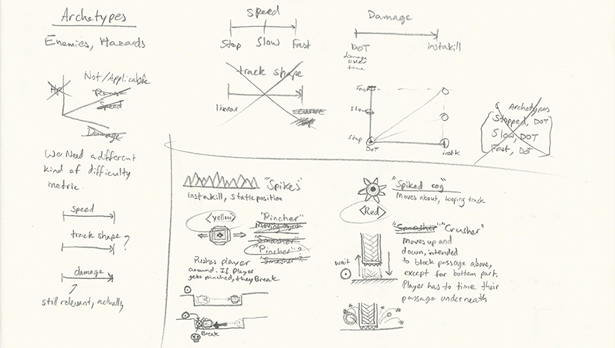 Archetypes
Enemies, Hazards
Not/Applicable
Speed
Damage
We Need a different
kind of difficulty
metric.
speed
track shape?
damage
still relevant, actually
Speed
Stop Slow Fast
track shape
linear
Damage
DOT
damage
over
time
instakill
Fast
Slow
Stop
DOT
instk
6 Archetypes
Stopped, DOT
Slow, DOT
Fast, DOT
"Spikes"
instakill, static position
<yellow>
"Pincher"
"Pincher"
Pushes player
around. If Player
gets pinched, they Break
Break
"Spiked cog"
Moves about, looping track
<Red>
"Smasher" "Crusher"
Moves up and
down, intended
to block passage above,
except for bottom part.
Player has to time their
passage underneath
wait